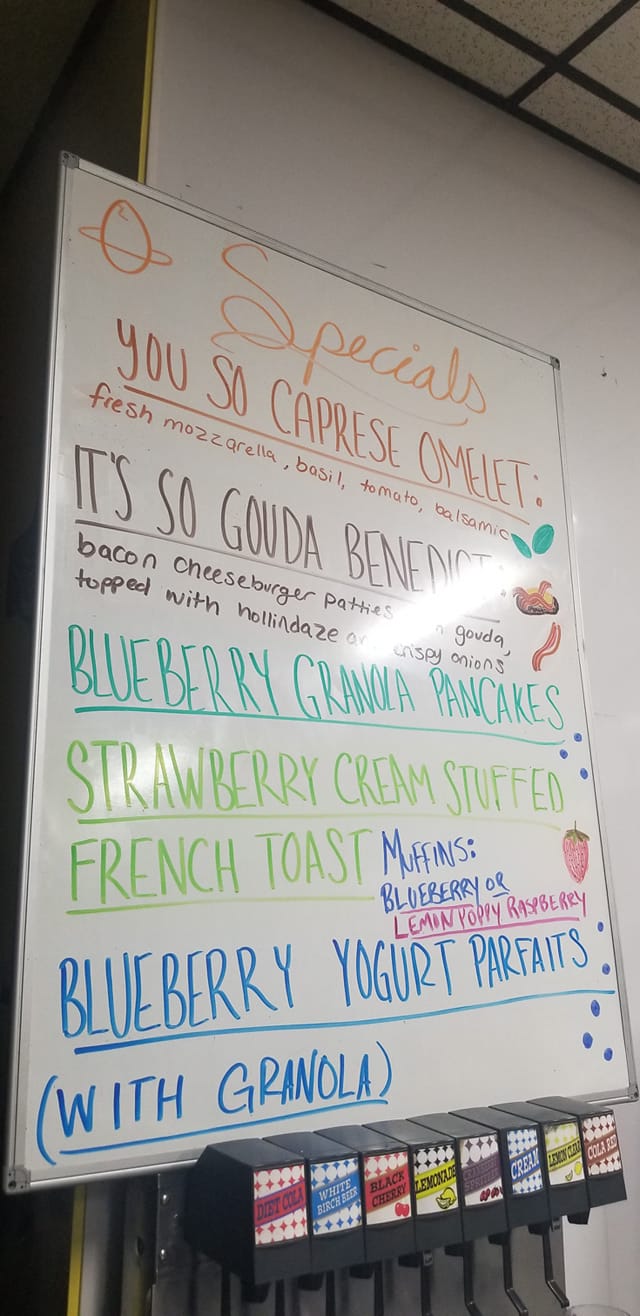 Specials
YOU SO CAPRESE OMELET:
fresh mozzarella, basil, tomato, balsamic
IT'S SO GOUDA BENEDICT:
bacon cheeseburger patties gouda,
topped with hollindaze crispy onions
BLUEBERRY GRANOLA PANCAKES
STRAWBERRY CREAM STUFFED
FRENCH TOAST
MUFFINS:
BLUEBERRY OR
LEMON POPPY RASPBERRY
BLUEBERRY YOGURT PARFAITS
(WITH GRANOLA)
DIET COLA
WHITE
BIRCH BEER
BLACK
CHERRY
LEMONADE
CREAM
LEMON CLEAR
COLA RED